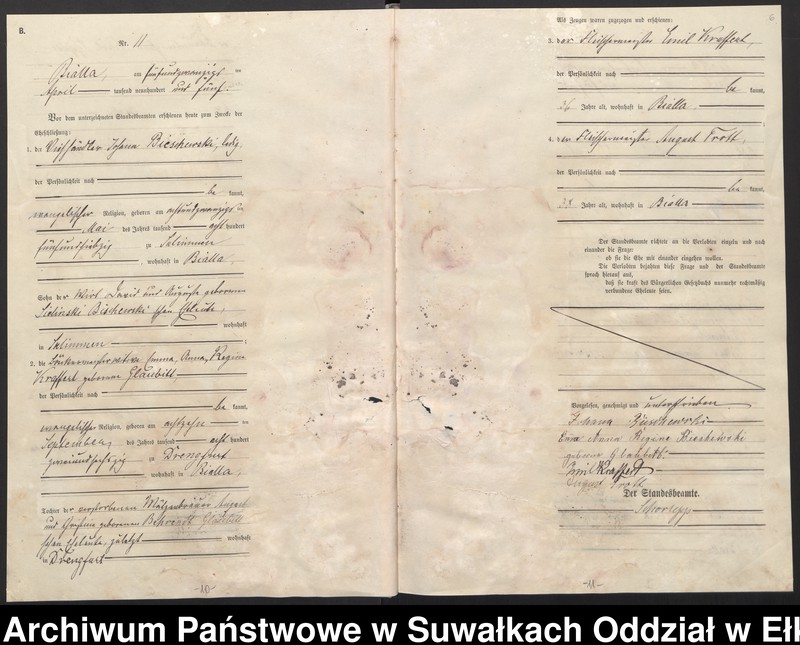 B.
Nr. 11
Bialla, am fünfundzwanzigsten
April tausend neunhundert und fünf.
Vor dem unterzeichneten Standesbeamten erschienen heute zum Zwecke der
Eheschließung:
1. der Viehhändler Johann Bieschewski, ledig,
der Persönlichkeit nach
be kannt,
evangelischer Religion, geboren am achtundzwanzigsten
Mai des Jahres tausend acht hundert
fünfundsiebzig zu
, wohnhaft in Bialla,
Sohn der Wirt David und Auguste geborenen
Bieschewski schen Eheleute,
wohnhaft
in
2. die Emma, Anna, Regine
Kraffert geborene Glaubitt
der Persönlichkeit nach
be kannt,
evangelischer Religion, geboren am achtzehnten
September des Jahres tausend acht hundert
zweiundsechzig zu Drengfurt
, wohnhaft in Bialla,
Tochter der verstorbenen Mälzenbräuer August
und geborenen Behrendt Glaubitt
schen Eheleute, zuletzt wohnhaft
in Drengfurt
-10-
6.
Als Zeugen waren zugezogen und erschienen:
3. der Fleischermeister Emil Kraffert,
der Persönlichkeit nach
be kannt,
Jahre alt, wohnhaft in Bialla
4. der Fleischermeister August Trott,
der Persönlichkeit nach
be kannt,
Jahre alt, wohnhaft in Bialla
Der Standesbeamte richtete an die Verlobten einzeln und nach
einander die Frage:
ob sie die Ehe mit einander eingehen wollen.
Die Verlobten bejahten diese Frage und der Standesbeamte
sprach hierauf aus,
daß sie kraft des Bürgerlichen Gesetzbuchs nunmehr rechtmäßig
verbundene Eheleute seien.
Vorgelesen, genehmigt und unterschrieben
Johann Bieschewski
Emma Anna Regine Bieschewski
geborene Glaubitt
Emil Kraffert
August Trott
Der Standesbeamte.
-11-
Archiwum Państwowe w Suwałkach Oddział w Ełk